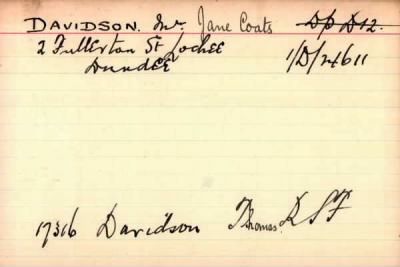 DAVIDSON. Mr. Jane Coats D/p D12.
2 Fullerton St Lochee 1/D/24611
Dundee
17316 Davidson Thomas. R S F